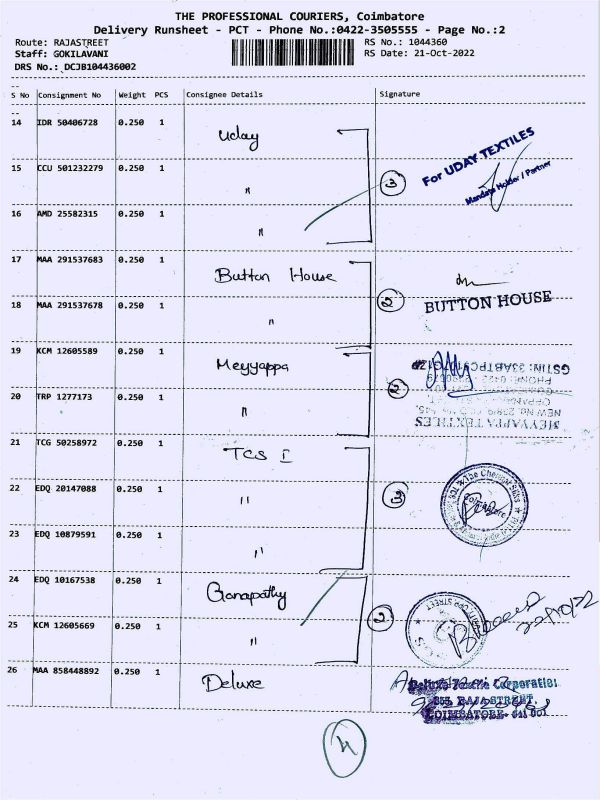 THE PROFESSIONAL COURIERS, Coimbatore
Delivery Runsheet - PCT - Phone No.:0422-3505555 - Page No.:2
Route: RAJASTREET
RS No.: 1044360
Staff: GOKILAVANI
RS Date: 21-Oct-2022
DRS No.: DCJB104436002
--
S No Consignment No Weight PCS Consignee Details Signature
--
14 IDR 50406728 0.250 1 Uday
15 CCU 501232279 0.250 1 "
3
For UDAY TEXTILES
Mandate Holder / Partner
16 AMD 25582315 0.250 1 "
17 MAA 291537683 0.250 1 Button House
18 MAA 291537678 0.250 1 "
2
BUTTON HOUSE
19 KCM 12605589 0.250 1 Meyyappa
20 TRP 1277173 0.250 1 "
2
MEYYAPPA TEXTILES
21 TCG 50258972 0.250 1 TCS I
22 EDQ 20147088 0.250 1 "
3
The Chennai Silks
Coimbatore
23 EDQ 10879591 0.250 1 "
24 EDQ 10167538 0.250 1 Ganapathy
2
25 KCM 12605669 0.250 1 "
26 MAA 858448892 0.250 1 Deluxe
Deluxe Textile Corporation
RAJA STREET,
COIMBATORE- 641 001
4